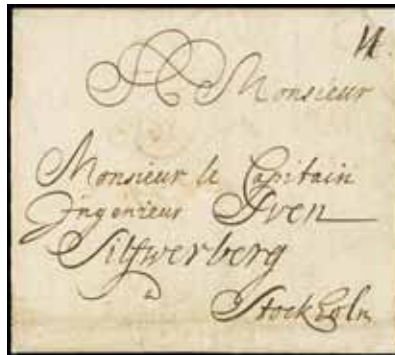 A Monsieur
Monsieur le Capitain
Ingenieur Sven
Silfwerberg
à
Stockholm